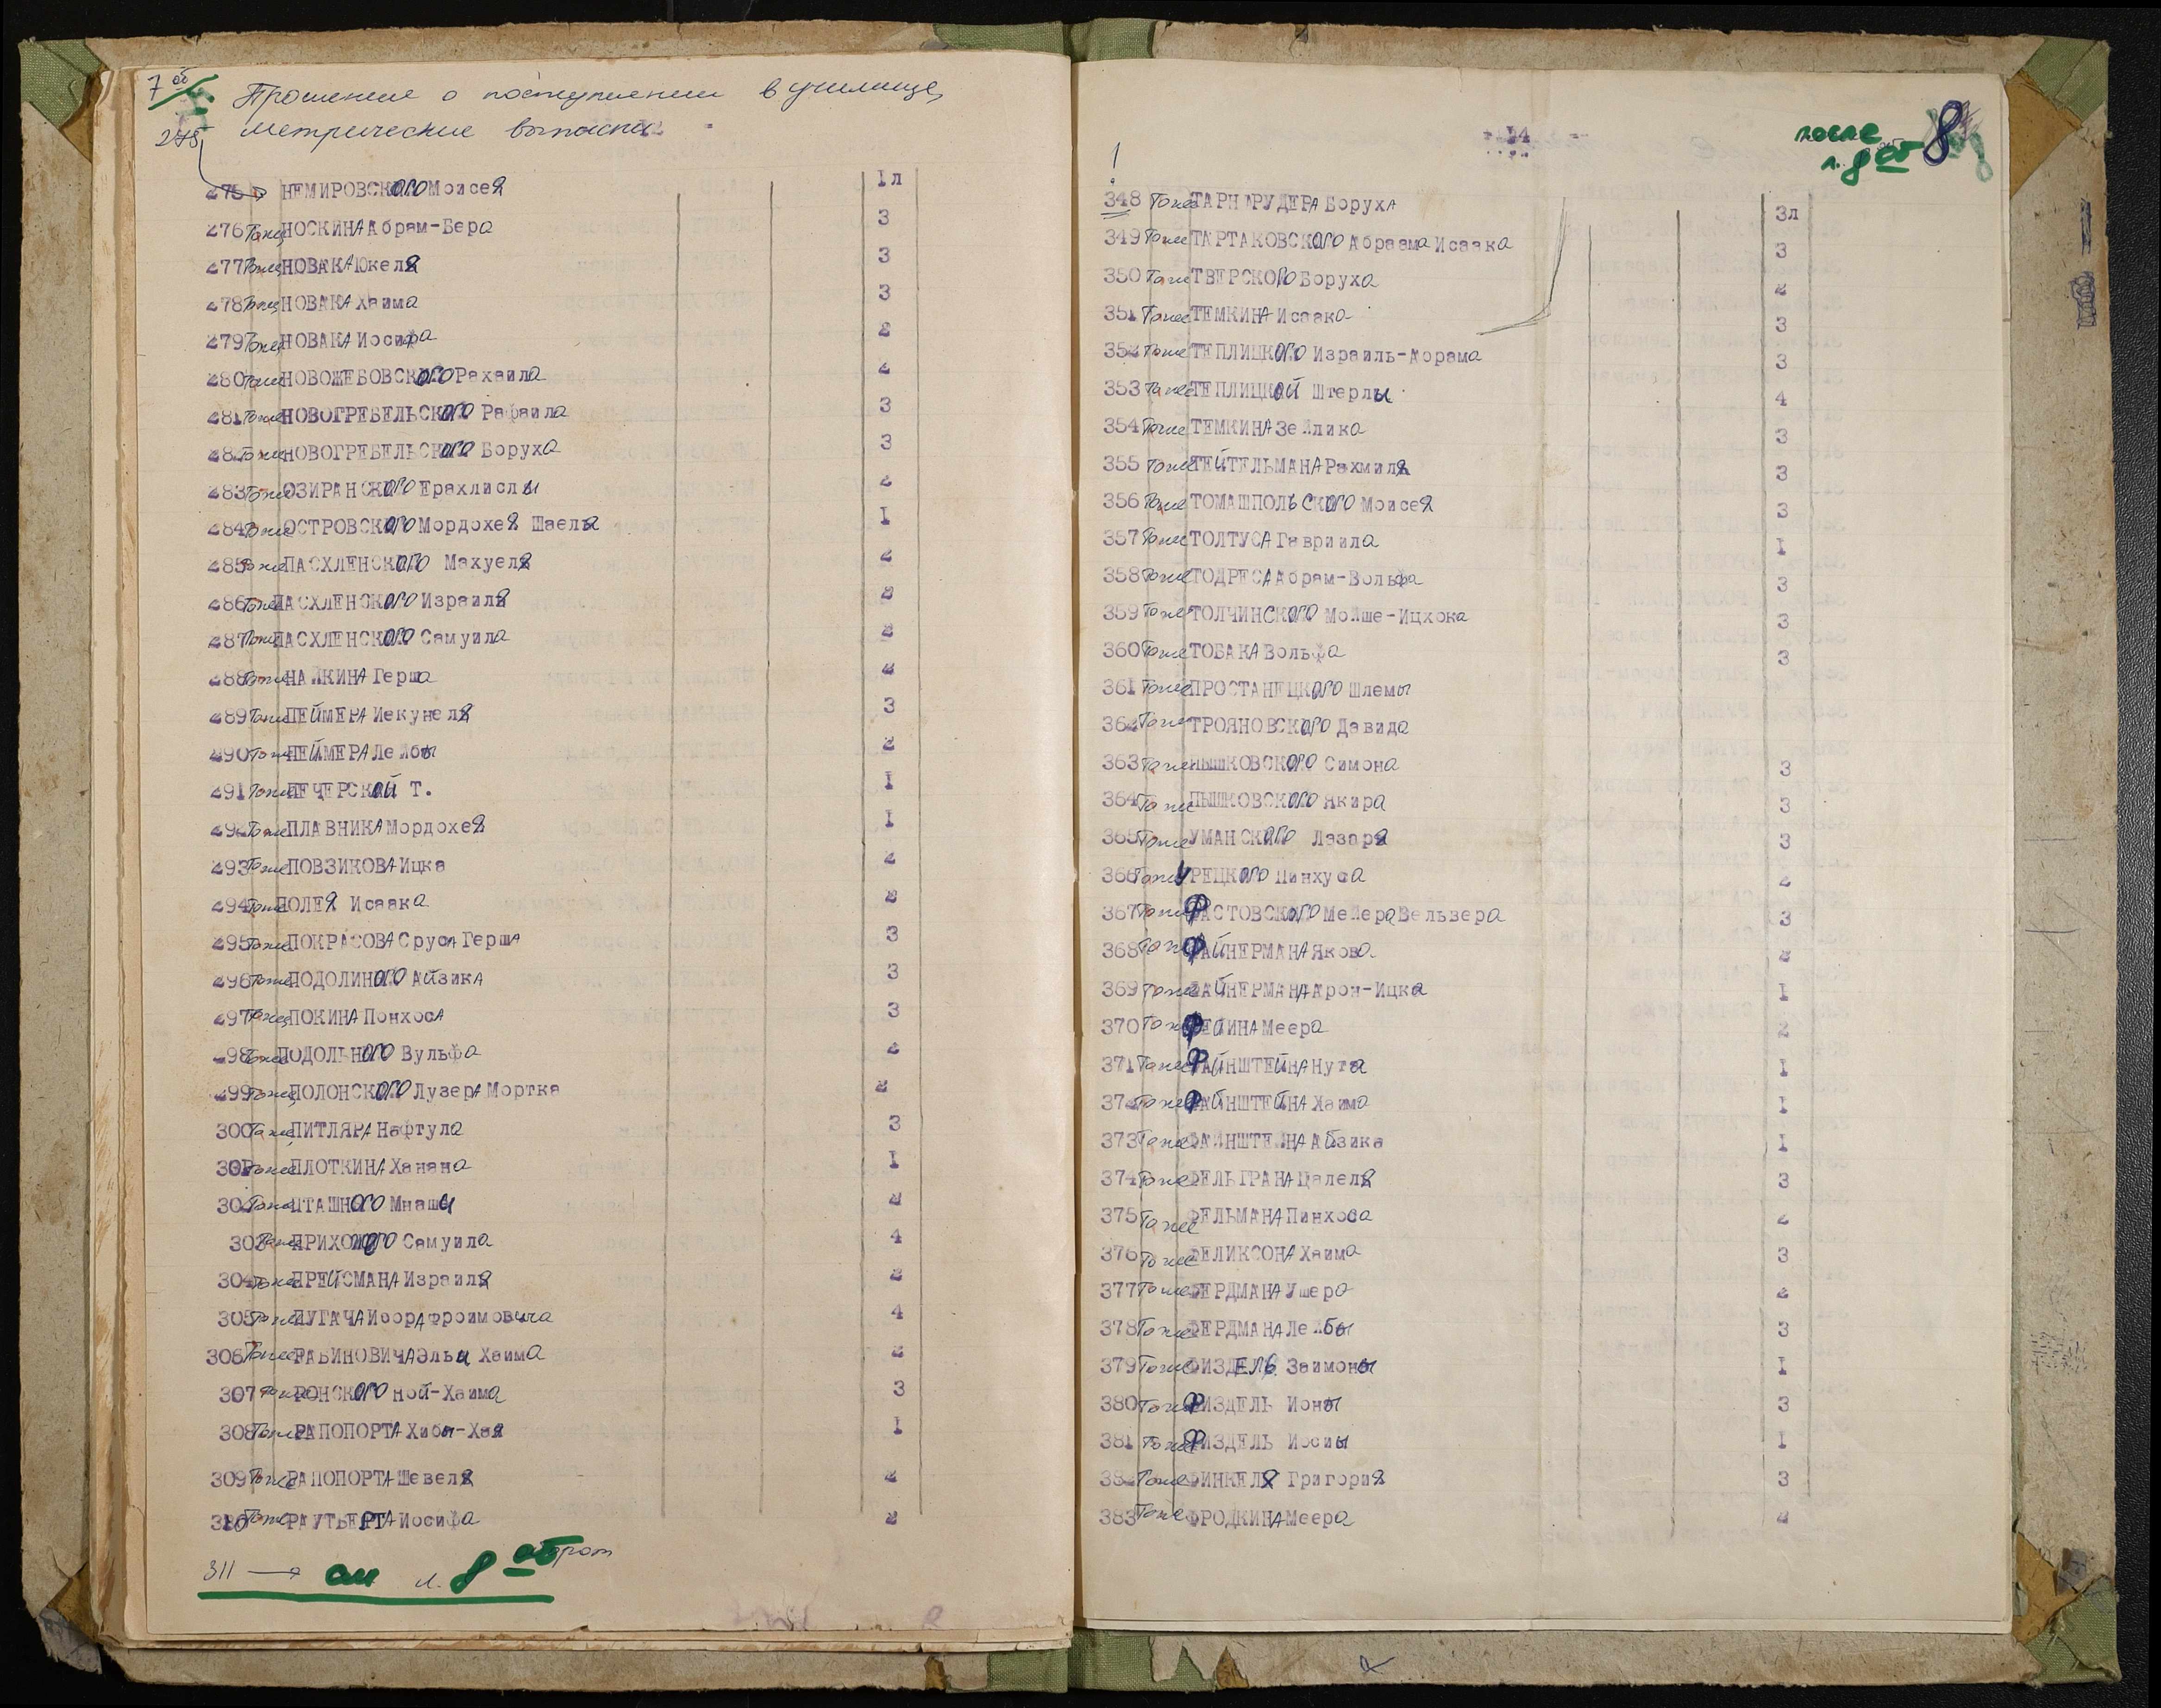 7 об
Прошение о поступлении в училище,
275 метрические выписки
275 НЕМИРОВСКОГО Моисея 1л
276 Тоже НОСКИНА Абрам-Бера 3
277 Тоже НОВАКА Юкеля 3
278 Тоже НОВАКА Хаима 3
279 Тоже НОВАКА Иосифа 2
280 Тоже НОВОЖЕБОВСКОГО Рахаила 2
281 Тоже НОВОГРЕБЕЛЬСКОГО Рафаила 3
282 Тоже НОВОГРЕБЕЛЬСКОГО Боруха 3
283 Тоже ОЗИРАНСКОГО Ерахлислы 2
284 Тоже ОСТРОВСКОГО Мордохея Шаеля 1
285 Тоже ПАСХЛЕНСКОГО Махуеля 2
286 Тоже ПАСХЛЕНСКОГО Израиля 2
287 Тоже ПАСХЛЕНСКОГО Самуила 2
288 Тоже ПАЛКИНА Герша 2
289 Тоже ПЕЙМЕРА Иекунеля 3
290 Тоже ПЕЙМЕРА Лейбы 2
291 Тоже ПЕЧЕРСКОЙ Т. 1
292 Тоже ПЛАВНИКА Мордохея 1
293 Тоже ПОВЗИКОВА Ицка 2
294 Тоже ПОЛЕЯ Исаака 2
295 Тоже ПОКРАСОВА Сруса Герша 3
296 Тоже ПОДОЛИНОГО Айзика 3
297 Тоже ПОКИНА Понхоса 3
298 Тоже ПОДОЛЬНОГО Вульфа 2
299 Тоже ПОЛОНСКОГО Лузера Мортка 2
300 Тоже ПИТЛЯРА Нафтула 3
301 Тоже ПЛОТКИНА Ханана 1
302 Тоже ПТАШНОГО Мнаши 2
303 Тоже ПРИХОЖОГО Самуила 4
304 Тоже ПРЕЙСМАНА Израиля 2
305 Тоже ПУГАЧА Иосра Фроимовича 4
306 Тоже РАБИНОВИЧА Эльи Хаима 2
307 Тоже РОНСКОГО ной-Хаима 3
308 Тоже РАПОПОРТА Хибы-Хая 1
309 Тоже РАПОПОРТА Шевеля 2
310 Тоже РАУТБЕРТА Иосифа 2
311 → см л. 8 об оборот
14
после л. 8 об 8
!
348 Тоже ТАРНАРУДЕРА Боруха 3л
349 Тоже ТАРТАКОВСКОГО Абраама Исаака 3
350 Тоже ТВЕРСКОГО Боруха 2
351 Тоже ТЕМКИНА Исаака 3
352 Тоже ТЕПЛИЦКОГО Израиль-Абрама 3
353 Тоже ТЕПЛИЦКОЙ Штерлы 4
354 Тоже ТЕМКИНА Зейлика 3
355 Тоже ТЕЙТЕЛЬМАНА Рахмиля 3
356 Тоже ТОМАШПОЛЬСКОГО Моисея 3
357 Тоже ТОЛТУСА Гавриила 1
358 Тоже ТОДРЕСА Абрам-Вольфа 3
359 Тоже ТОЛЧИНСКОГО Мойше-Ицхока 3
360 Тоже ТОБАКА Вольфа 3
361 Тоже ПРОСТАНЕЦКОГО Шлемы
362 Тоже ТРОЯНОВСКОГО Давида
363 Тоже ПЫШКОВСКОГО Симона 3
364 Тоже ПЫШКОВСКОГО Якира 3
365 Тоже УМАНСКОГО Лазаря 3
366 Тоже УРЕЦКОГО Пинхуса 2
367 Тоже ФАСТОВСКОГО Мейера Вельвера 3
368 Тоже ФАЙНЕРМАНА Якова 2
369 Тоже ФАЙНЕРМАНА Арон-Ицка 1
370 Тоже ФЕЛИНА Меера 2
371 Тоже ФАЙНШТЕЙНА Нута 1
372 Тоже ФАЙНШТЕЙНА Хаима 1
373 Тоже ФАЙНШТЕЙНА Абзика 1
374 Тоже ФЕЛЬГРАНА Цалеля 3
375 Тоже ФЕЛЬМАНА Пинхоса 2
376 Тоже ФЕЛИКСОНА Хаима 3
377 Тоже ФЕРДМАНА Ушера 2
378 Тоже ФЕРДМАНА Лейбы 3
379 Тоже ФИЗДЕЛЬ Заимоны 1
380 Тоже ФИЗДЕЛЬ Ионы 3
381 Тоже ФИЗДЕЛЬ Иосиы 1
382 Тоже ФИНКЕЛЯ Григория 3
383 Тоже ФРОДКИНА Меера 2